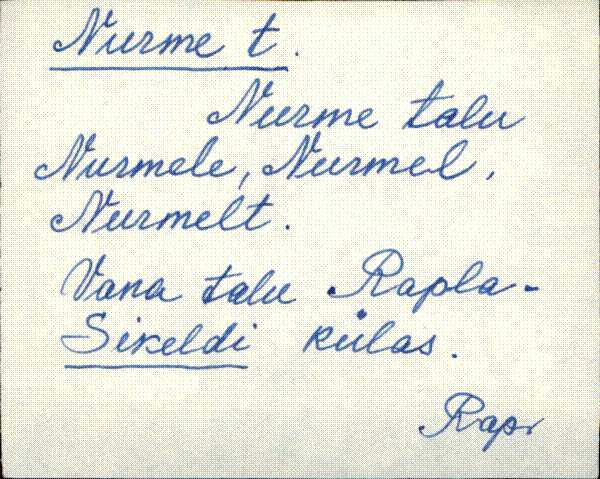 Nurme t.
Nurme talu
Nurmele, Nurmel,
Nurmelt.
Vana talu Rapla-
Sikeldi külas.
Rapr